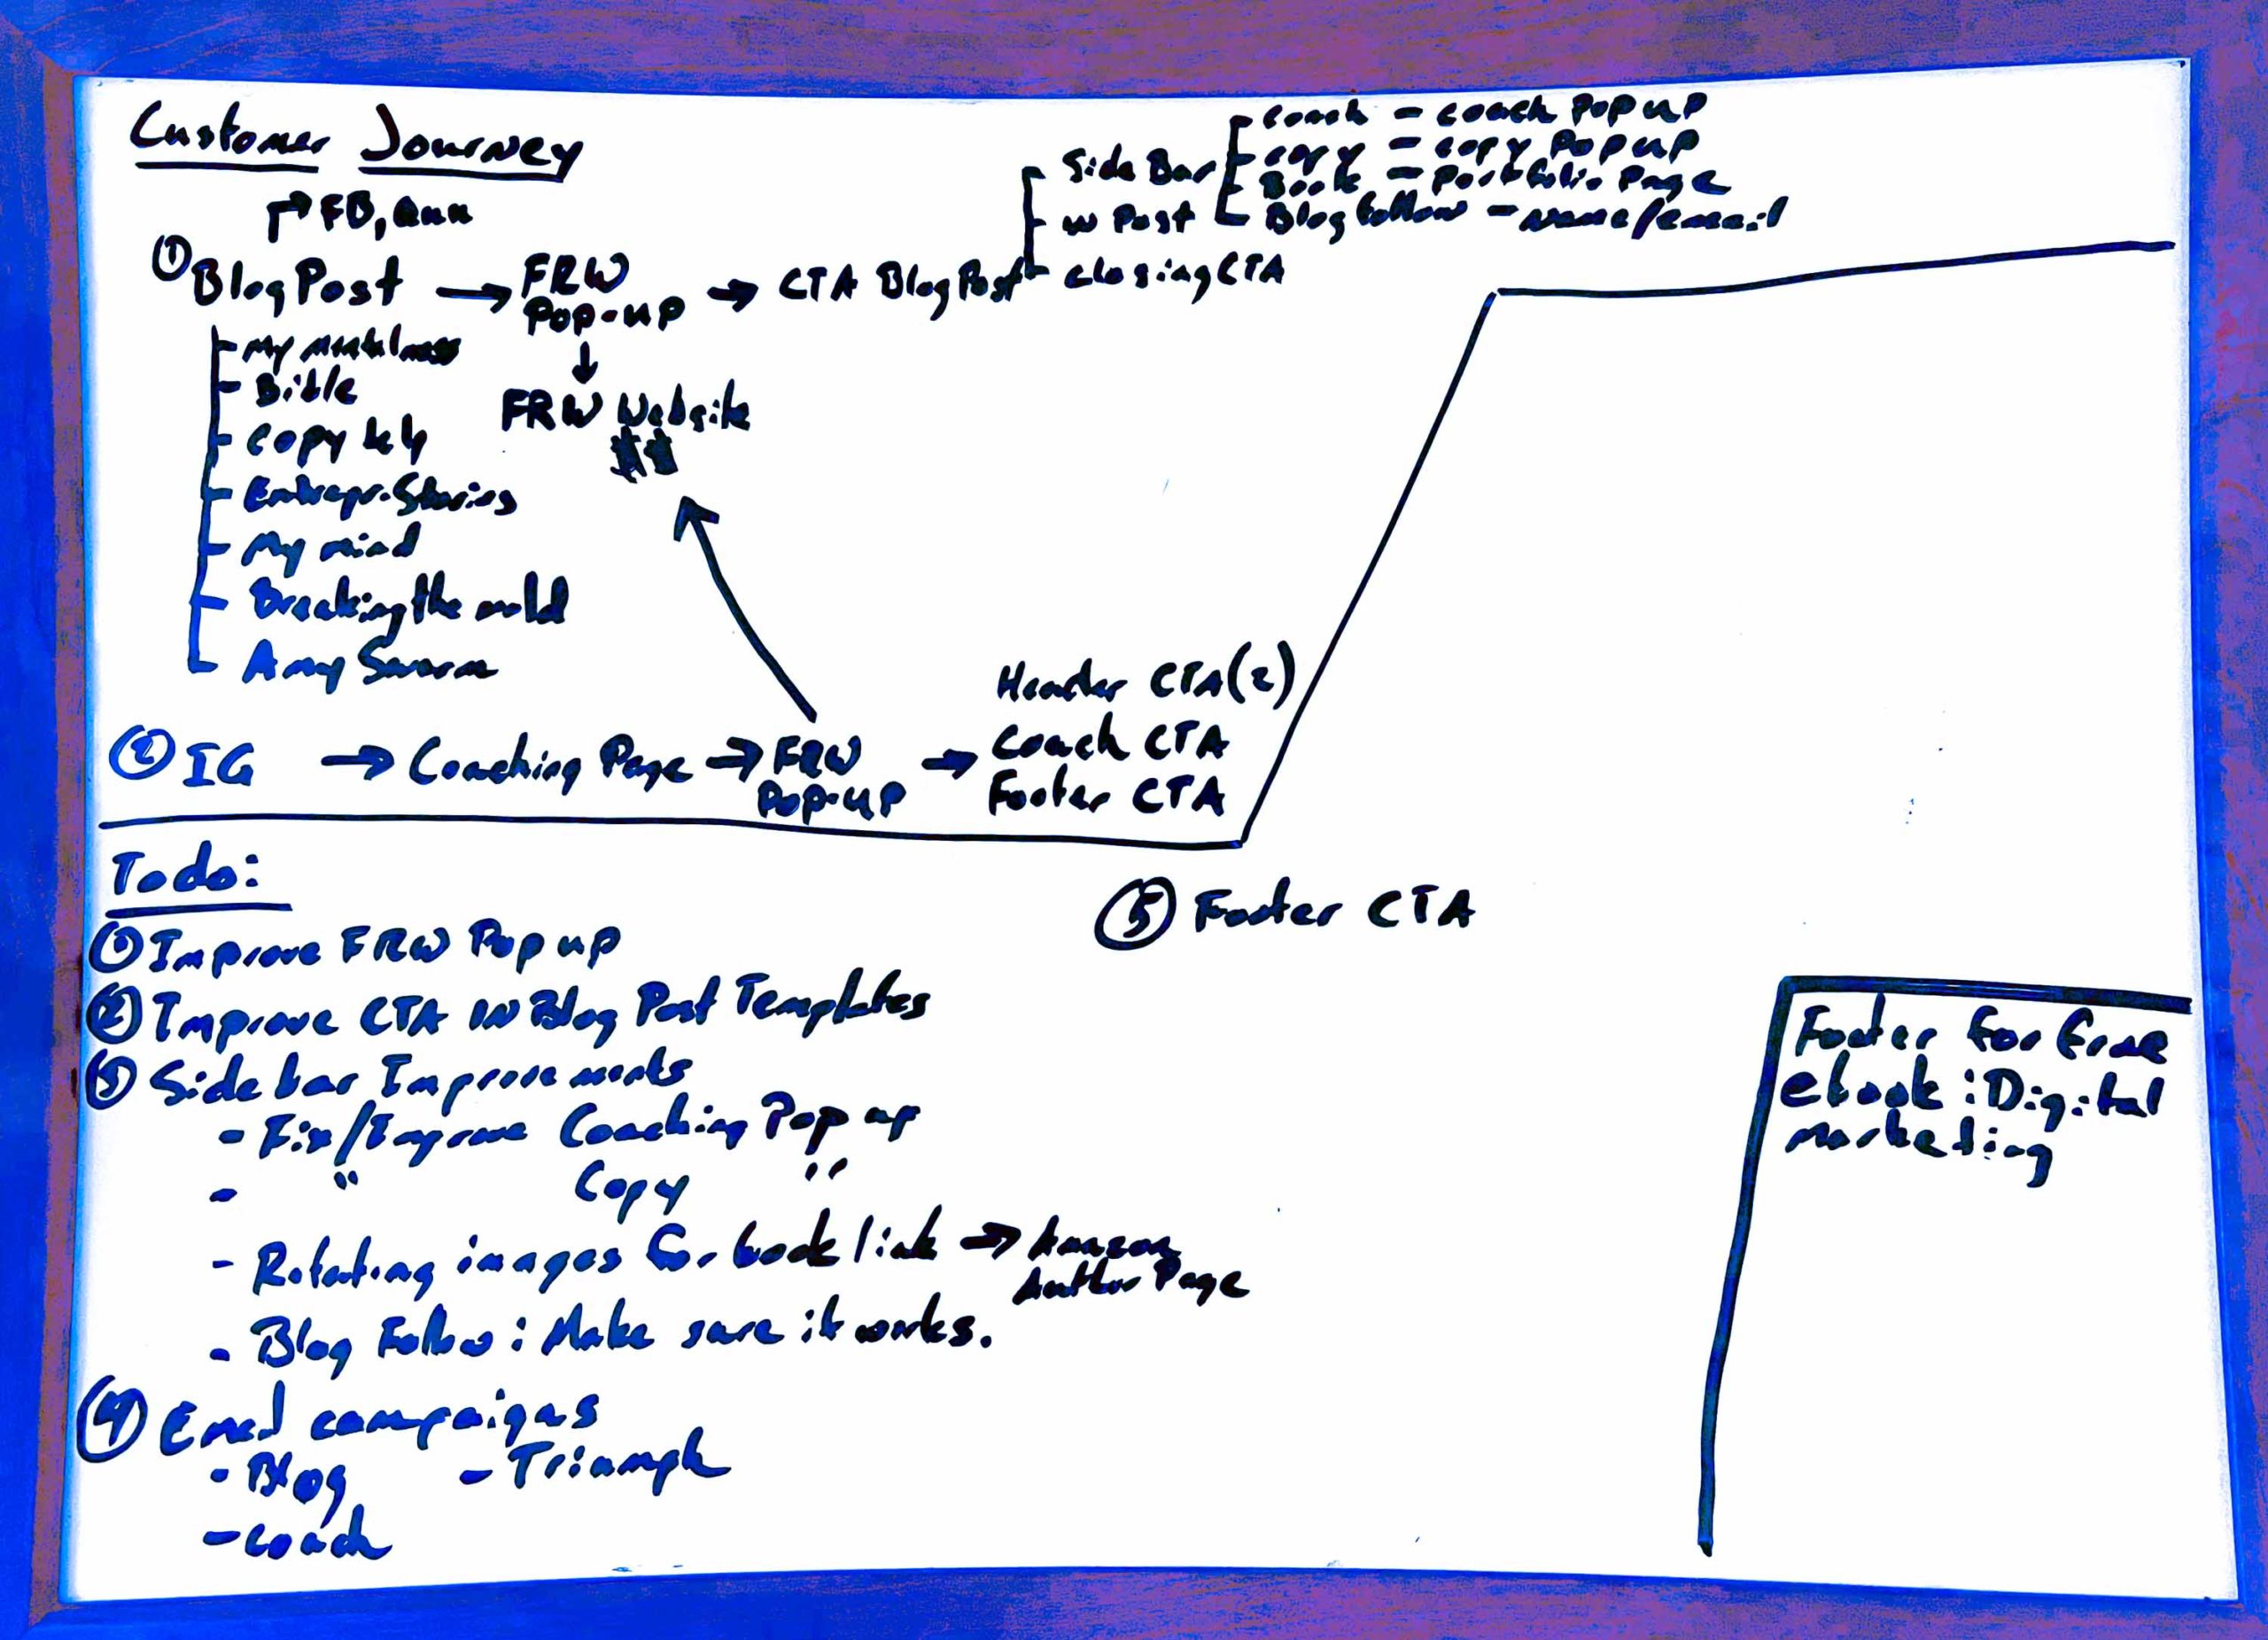 Customer Journey
FB,
① Blog Post → FRW Pop-up → CTA Blog Post
Side Bar
w Post
closing CTA
Coach - coach Pop up
copy - copy Pop up
Book - Portfolio Page
Blog follow - name/email
My
Bible
Copy
Entrepr. Stories
My mind
Breaking the mold
Amy
↓
FRW Website
$$
② IG → Coaching Page → FRW Pop-up →
Header CTA (2)
Coach CTA
Footer CTA
Todo:
① Improve FRW Pop up
② Improve CTA IN Blog Post Templates
③ Side bar Improvements
- Fix/Improve Coaching Pop up
- " Copy "
- Rotating images for book link → Amazon
Author Page
- Blog Follow: Make sure it works.
④ Email campaigns
- Blog - Triumph
- coach
⑤ Footer CTA
Footer for free
ebook: Digital
marketing